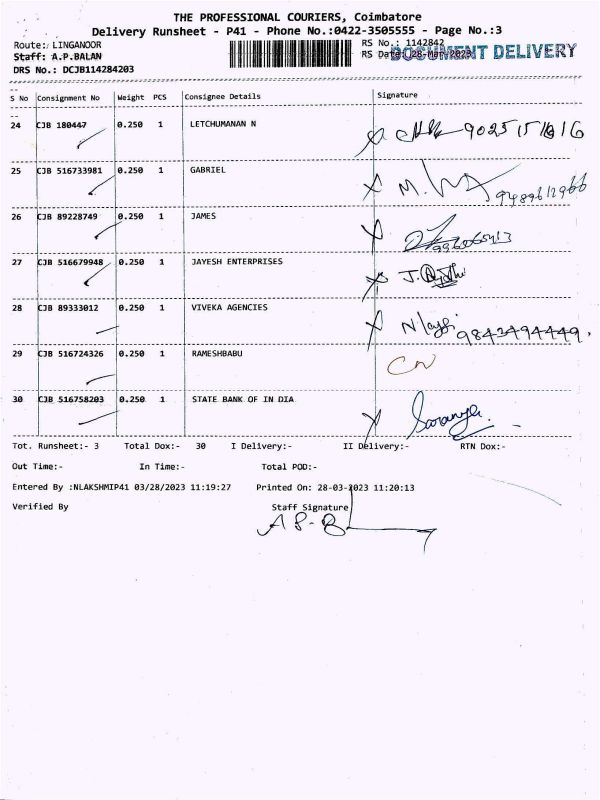 THE PROFESSIONAL COURIERS, Coimbatore
Delivery Runsheet - P41 - Phone No.:0422-3505555 - Page No.:3
Route:/ LINGANOOR
RS No.: 1142842
Staff: A.P.BALAN
RS Date: 28-Mar-2023
DOCUMENT DELIVERY
DRS No.: DCJB114284203
S No Consignment No Weight PCS Consignee Details Signature
24 CJB 180447 0.250 1 LETCHUMANAN N
25 CJB 516733981 0.250 1 GABRIEL
26 CJB 89228749 0.250 1 JAMES
27 CJB 516679948 0.250 1 JAYESH ENTERPRISES
28 CJB 89333012 0.250 1 VIVEKA AGENCIES 9843494449.
29 CJB 516724326 0.250 1 RAMESHBABU
30 CJB 516758203 0.250 1 STATE BANK OF IN DIA Saranya
Tot. Runsheet:- 3 Total Dox:- 30 I Delivery:- II Delivery:- RTN Dox:-
Out Time:- In Time:- Total POD:-
Entered By :NLAKSHMIP41 03/28/2023 11:19:27 Printed On: 28-03-2023 11:20:13
Verified By Staff Signature
A P- B